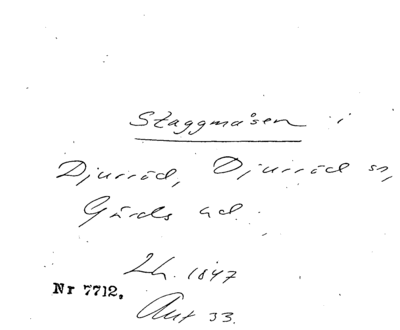 Staggmåsen i
Djurröd, Djurröd sn,
Gärds hd.
Lh. 1847
Nr 7712.
Akt 33.